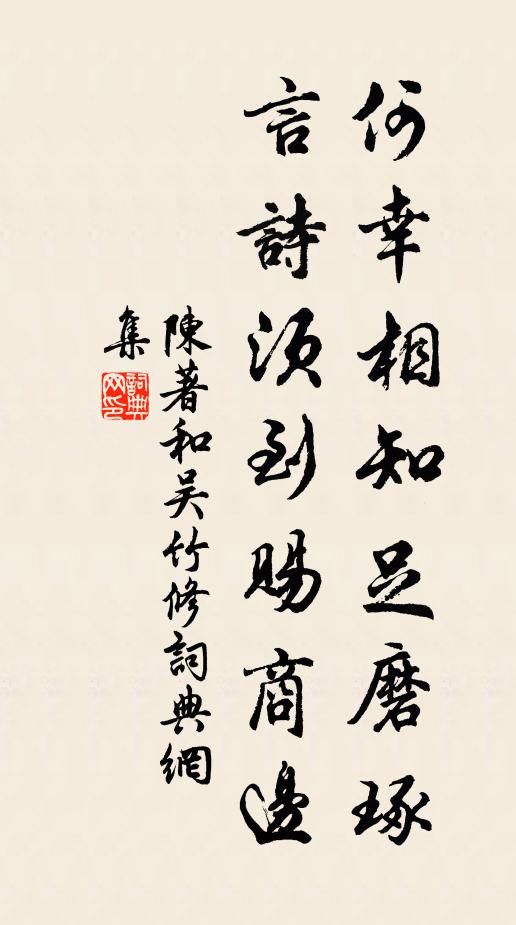 何幸相知足磨琢
言詩須到賜商邊
陳著和吴竹修詞典網
集
詞典
网印